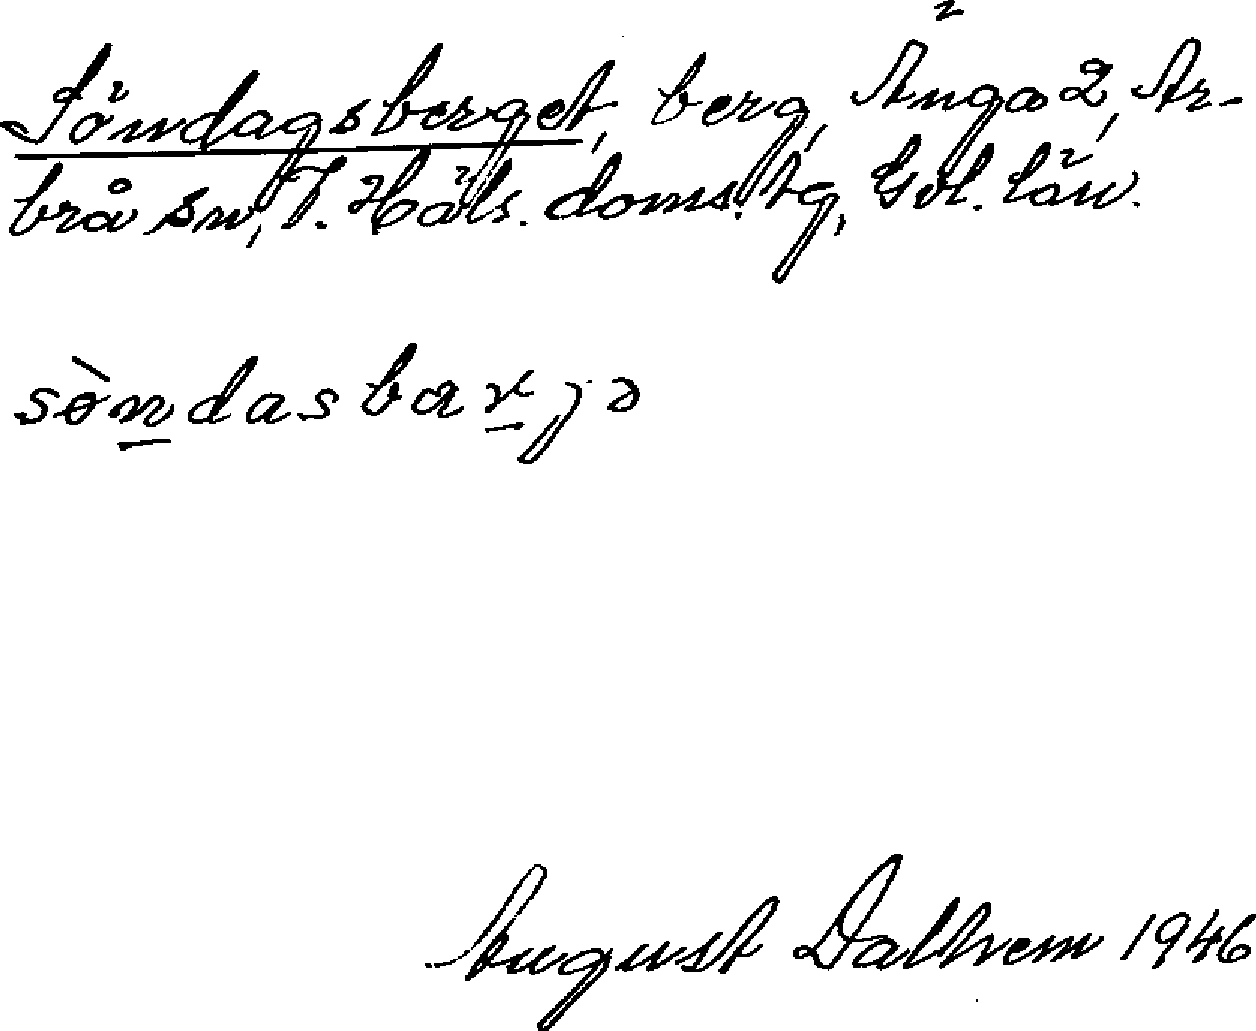 Söndagsberget, berg, Änga 2, Ar-
brå sn, V. Häls. doms. tg, Gvl. län.
sòndasbarjə
August Dalhem 1946